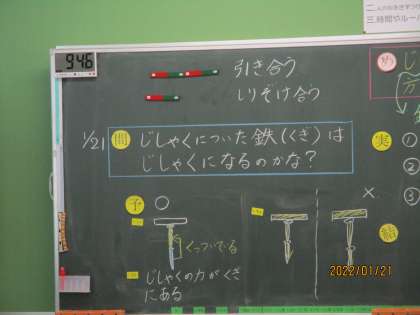 二.
三.時間やルー
946
引き合う
しりぞけ合う
1/21
問
じしゃくについた鉄(くぎ)は
じしゃくになるのかな?
予
○
くっついている
じしゃくの力がくぎ
にある
×
実
①
②
③
結
2022/01/21